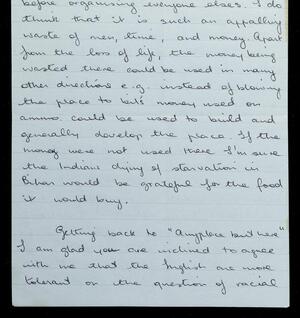 before organising everyone else's. I do
think that it is such an appalling
waste of men, time, and money. Apart
from the loss of life, the money being
wasted there could be used in many
other directions e.g. instead of blowing
the place to hell money used on
ammo. could be used to build and
generally develop the place. If the
money were not used there I'm sure
the Indians dying of starvation in
Bihar would be grateful for the food
it would buy.
Getting back to "Anyplace but here"
I am glad you are inclined to agree
with me that the English are more
tolerant on the question of racial